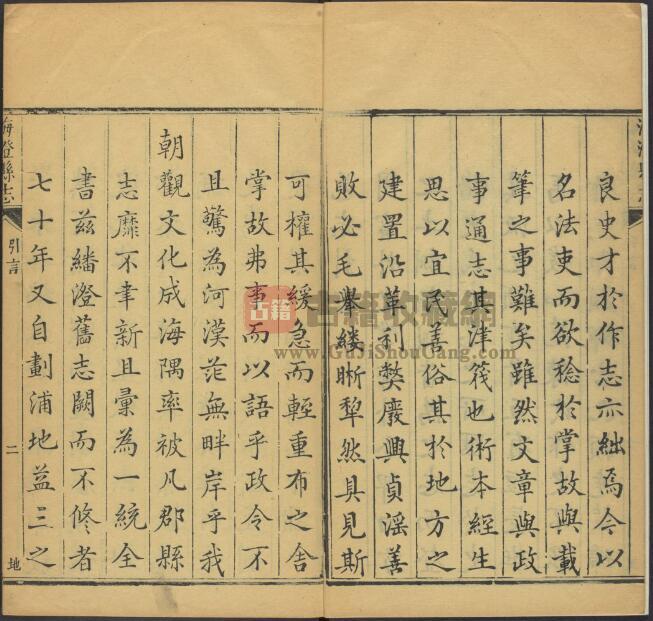 良史才於作志亦絀焉今以
名法吏而欲稔於掌故與載
筆之事難矣雖然文章與政
事通志其津筏也術本經生
思以宜民善俗其於地方之
建置沿革利獘廢興貞滛善
敗必毛舉縷晰犂然具見斯
可權其緩急而輊重布之舍
掌故弗事而以語乎政令不
且驚為河漢茫無畔岸乎我
朝觀文化成海隅率被凡郡縣
志靡不聿新且彙為一統全
書兹繙澄舊志闕而不修者
七十年又自劃浦地益三之
海澄縣志
引言
二
地
古籍
古籍收藏網
www.GuJiShouCang.com